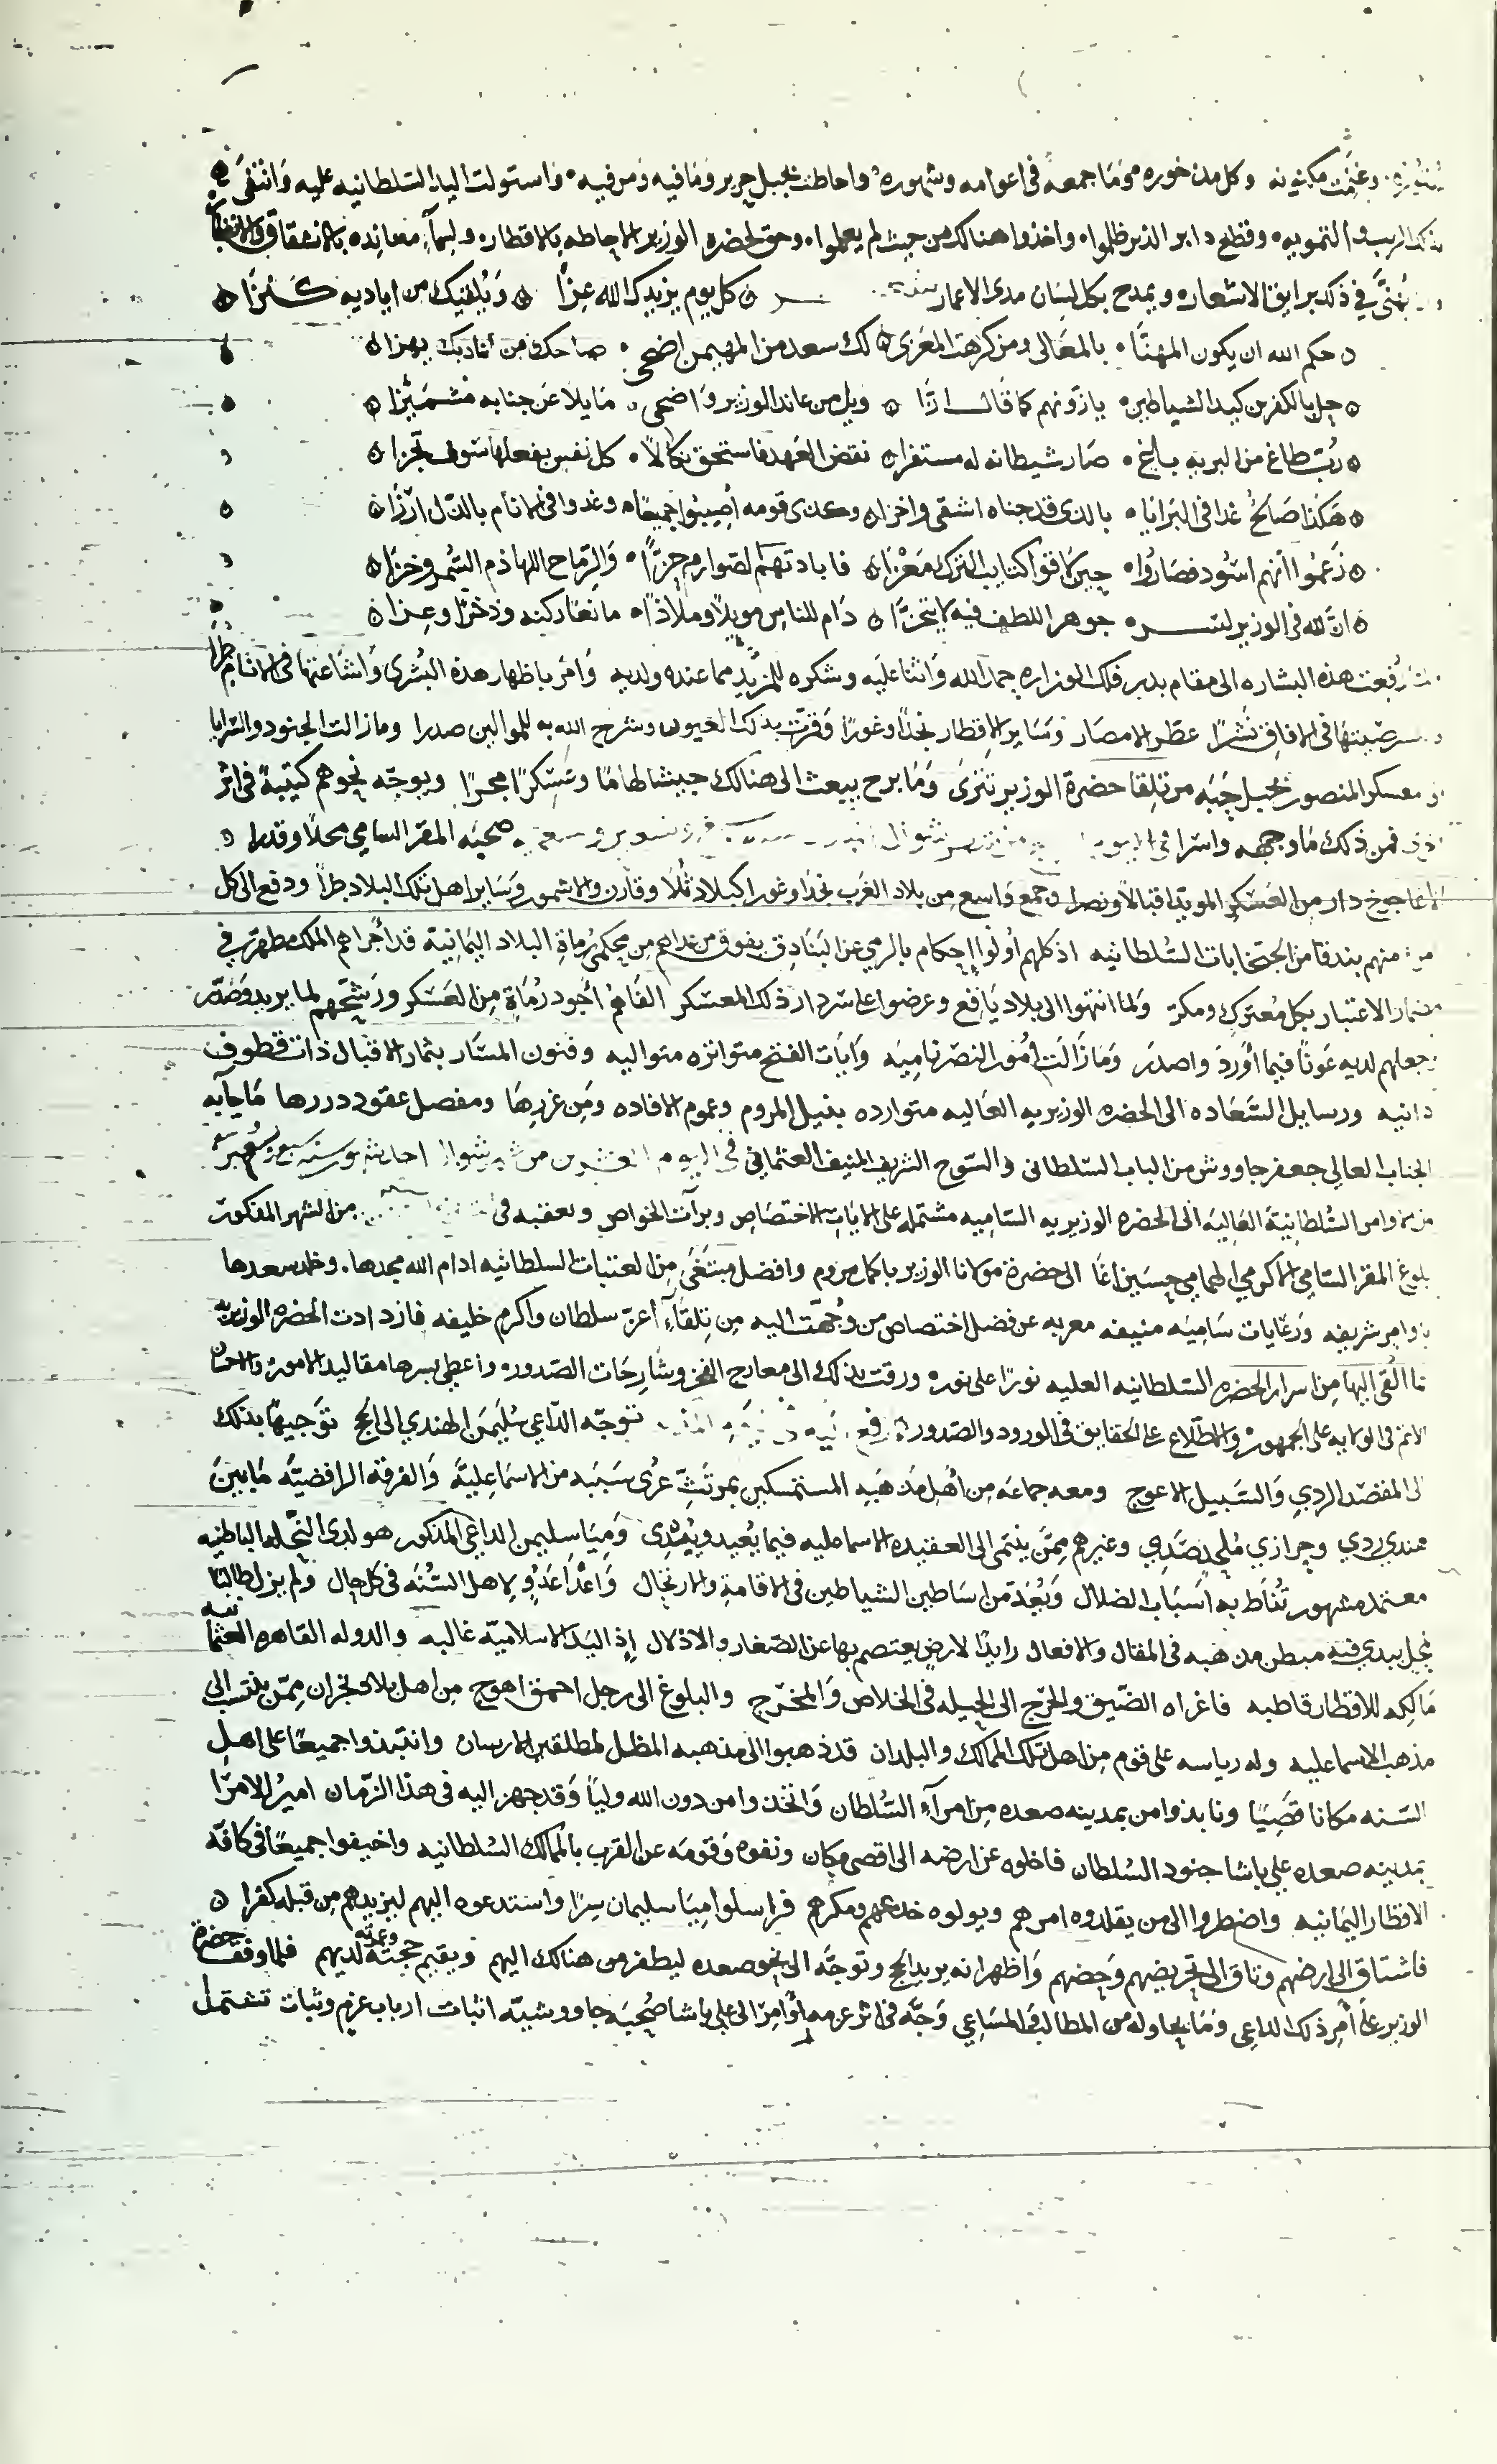 وغنمت مكنونه وكل مدخوره وما جمعه في اعوامه وشهوره واحاطت بجبل حرير وما فيه ومن فيه واستولت اليد السلطانيه عليه وانتفى
الريب والتمويه وقطع دابر الذين ظلموا واخذوا هنالك من حيث لم يعلموا وحق لحضره الوزير الاحاطه بالاقطار ولمعانده بالانشقاق
يهنى في ذلك برايق الاشعار ويمدح بكل لسان مدى الاعمار كل يوم يزيدك الله عزا ويلقيك من اياديه كنزا
حكم الله ان يكون المهنا بالمعالي ومن كرهت المعزى لك سعد من المهيمن اضحى ضاحكا من بهزا
حل بالكفر من كيد الشياطين يازونهم كما قال ازا ويل من عاند الوزير واضحى مايلا عن جنابه مشمئزا
رب طاغ من البريه باغ صار شيطانه له مستفزا نقض العهد فاستحق نكالا كل نفس بفعلها سوف تجزا
هكذا صالح غدا في البرايا بالذي قد جناه اشقى واخزا وكذى قومه اصيبوا جميعا وغدوا في الانام بالذل ارزا
زعموا انهم اسود فصاروا حين لاقوا كتايب الترك معزا فابادتهم الصوارم جزا والرماح اللهاذم السمر وخزا
ان لله في الوزير لسر جوهر اللطف فيه لا يتجزا دام للناس مويلا وملاذا وذخرا وعزا
رفعت هذه البشاره الى مقام بدر فلك الوزاره حمد الله واثنا عليه وشكره للمزيد مما عنده ولديه وامر باظهار هذه البشرى واشاعتها في الانام طرا
في الافاق نشرا عطر الامصار وساير الاقطار نجدا وغورا وقرت بذلك العيون وشرح الله به للموالين صدرا ومازالت الجنود والسرايا
معسكر المنصور بجبل حبه من تلقا حضرة الوزير تترى وما برح يبعث الى هنالك جيشا لهاما وعسكرا مجرا ويوجه نحوهم كتيبة في اثر
اخرى فمن ذلك ما وجهه واسرا في اليوم من شهر شوال صحبه المقر السامي محلا وقدرا
الاغا دار من العسكر المويد اقبالا ونصرا وجمع واسع من بلاد الغرب نجدا وغورا كبلاد ثلا وقارن والاشمور وساير اهل تلك البلاد طرا ودفع الى كل
منهم بندقا من الجبخانات السلطانيه اذ كلهم اولوا احكام بالرمي عن البنادق يفوق من عداهم من محكمي رماة البلاد اليمانية قد اجراهم الملك مطهر في
مضمار الاعتبار بكل معترك ومكر ولما انتهوا الى بلاد يافع وعرضوا على سردار ذلك المعسكر الفاهم اجود رماة من العسكر ورشحهم لما يريد وصدر
وجعلهم لديه عونا فيما اورد واصدر ومازالت امور النصر ناميه وايات الفتح متواتره متواليه وفنون المسار بثمار الاقبال ذات قطوف
دانيه ورسايل السعاده الى الحضره الوزيريه العاليه متوارده بنيل المروم وعموم الافاده ومن غررها ومفصل عقود دررها ما جا به
الجناب العالي جعفر جاووش من الباب السلطاني والسوح الشريف المنيف العثماني في اليوم العشرين من شهر شوال
من الاوامر السلطانية العالية الى الحضره الوزيريه الساميه مشتمله على الايات الاختصاص وبرآت الخواص وتعقبه في من الشهر المذكور
بلوغ المقر السامي الاكرمي الهمامي حسين اغا الى حضرة مولانا الوزير باكمل مروم وافضل مبتغى من العتبات السلطانيه ادام الله مجدها وخلد سعدها
باوامر شريفه ورعايات ساميه منيفه معربه عن فضل اختصاص من وجهت اليه من تلقاء اعز سلطان واكرم خليفه فازدادت الحضره الوزيريه
بما القى اليها من اسرار الحضره السلطانيه العليه نورا على نوره ورقت بذلك الى معارج الفخر وشارحات الصدوره واعطى بسرها مقاليد الامور
الاتم في الولايه على الجمهور والاطلاع على الحقايق في الورود والصدور توجه الداعي سليمن الهندي الى الحج توجيها بذلك
الى المقصد الردي والسبيل الاعوج ومعه جماعه من اهل مذهبه المستمسكين بمرتث عرى سببه من الاسماعلية والفرقة الرافضيه ما بين
هندي ردي وحرازي ملحد صدي وغيرهم ممن ينتمى الى العقيده الاسماعليه فيما يعيد ويبدى وميا سليمن الداعي المذكور هو لدى النحله الباطنيه
معتمد مشهور تناط به اسباب الضلال ويعد من اساطين الشياطين في الاقامة والارتحال واعدا عدو لاهل السنه في كل حال ولم يزل طالبا
مبطن مذهبه في المقال والافعال رايدا لارض يعتصم بها عن الصغار والاذلال اذ اليد الاسلامية غالبه والدوله القاهره العثمانيه
مالكه للاقطار قاطبه فاغراه الضيق والحرج الى الحيله في الخلاص والمخرج والبلوغ الى رجل احمق اهوج من اهل بلاد نجران ممن ينتسب الى
مذهب الاسماعليه وله رياسه على قوم من اهل تلك الممالك والبلدان قد ذهبوا الى مذهبه المظل لمطلقين الارسان وانتبذوا جميعا على اهل
السنه مكانا قصيا ونابذوا من بمدينه صعده من امرآء السلطان واتخذوا من دون الله وليا وقد جهز اليه في هذا الزمان امير الامرا
بمدينه صعده علي باشا جنود السلطان فاخلوه عن ارضه الى اقصى مكان ونفوه وقومه عن القرب بالممالك السلطانيه واخيفوا جميعا في كافة
الاقطار اليمانيه واضطروا الى من يقلدوه امرهم ويولوه خدعهم ومكرهم فراسلوا ميا سليمان سرا واستدعوه اليهم ليزيدهم من قبله كفرا
فاشتاق الى ارضهم وتاق الى تحريضهم وحضهم واظهر انه يريد الحج وتوجه الى نحو صعده ليطفر من هنالك اليهم ويقيم حجته وعمرته لديهم فلما وقف حضرة
الوزير على امر ذلك الداعي وما يحاوله من المطالب والمساعي وجه في اثر عزمه اوامر الى علي باشا صحبه جاووشيه اثبات ارباب عزم وثبات تشتمل